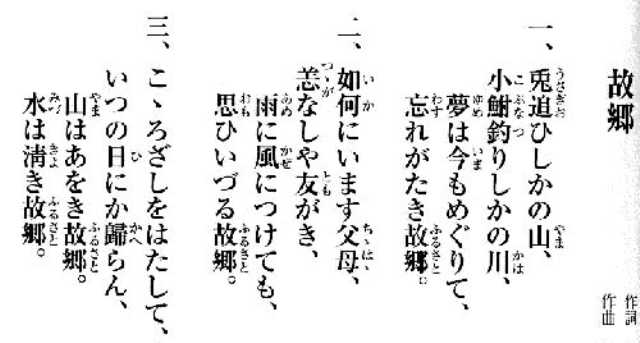 故郷
作詞
作曲
一、兎追ひしかの山、
小鮒釣りしかの川、
夢は今もめぐりて、
忘れがたき故郷。
二、如何にいます父母、
恙なしや友がき、
雨に風につけても、
思ひいづる故郷。
三、こゝろざしをはたして、
いつの日にか歸らん、
山はあをき故郷。
水は淸き故郷。